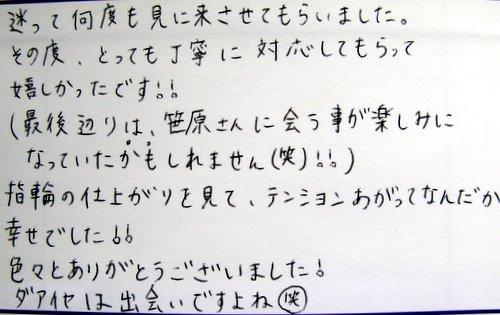 迷って何度も見に来させてもらいました。
その度、とっても丁寧に対応してもらって
嬉しかったです!!
(最後辺りは、笹原さんに会う事が楽しみに
なっていたかもしれません(笑)!!)
指輪の仕上がりを見て、テンションあがってなんだか
幸せでした!!
色々とありがとうございました!
ダアイヤは出会いですよね(笑)